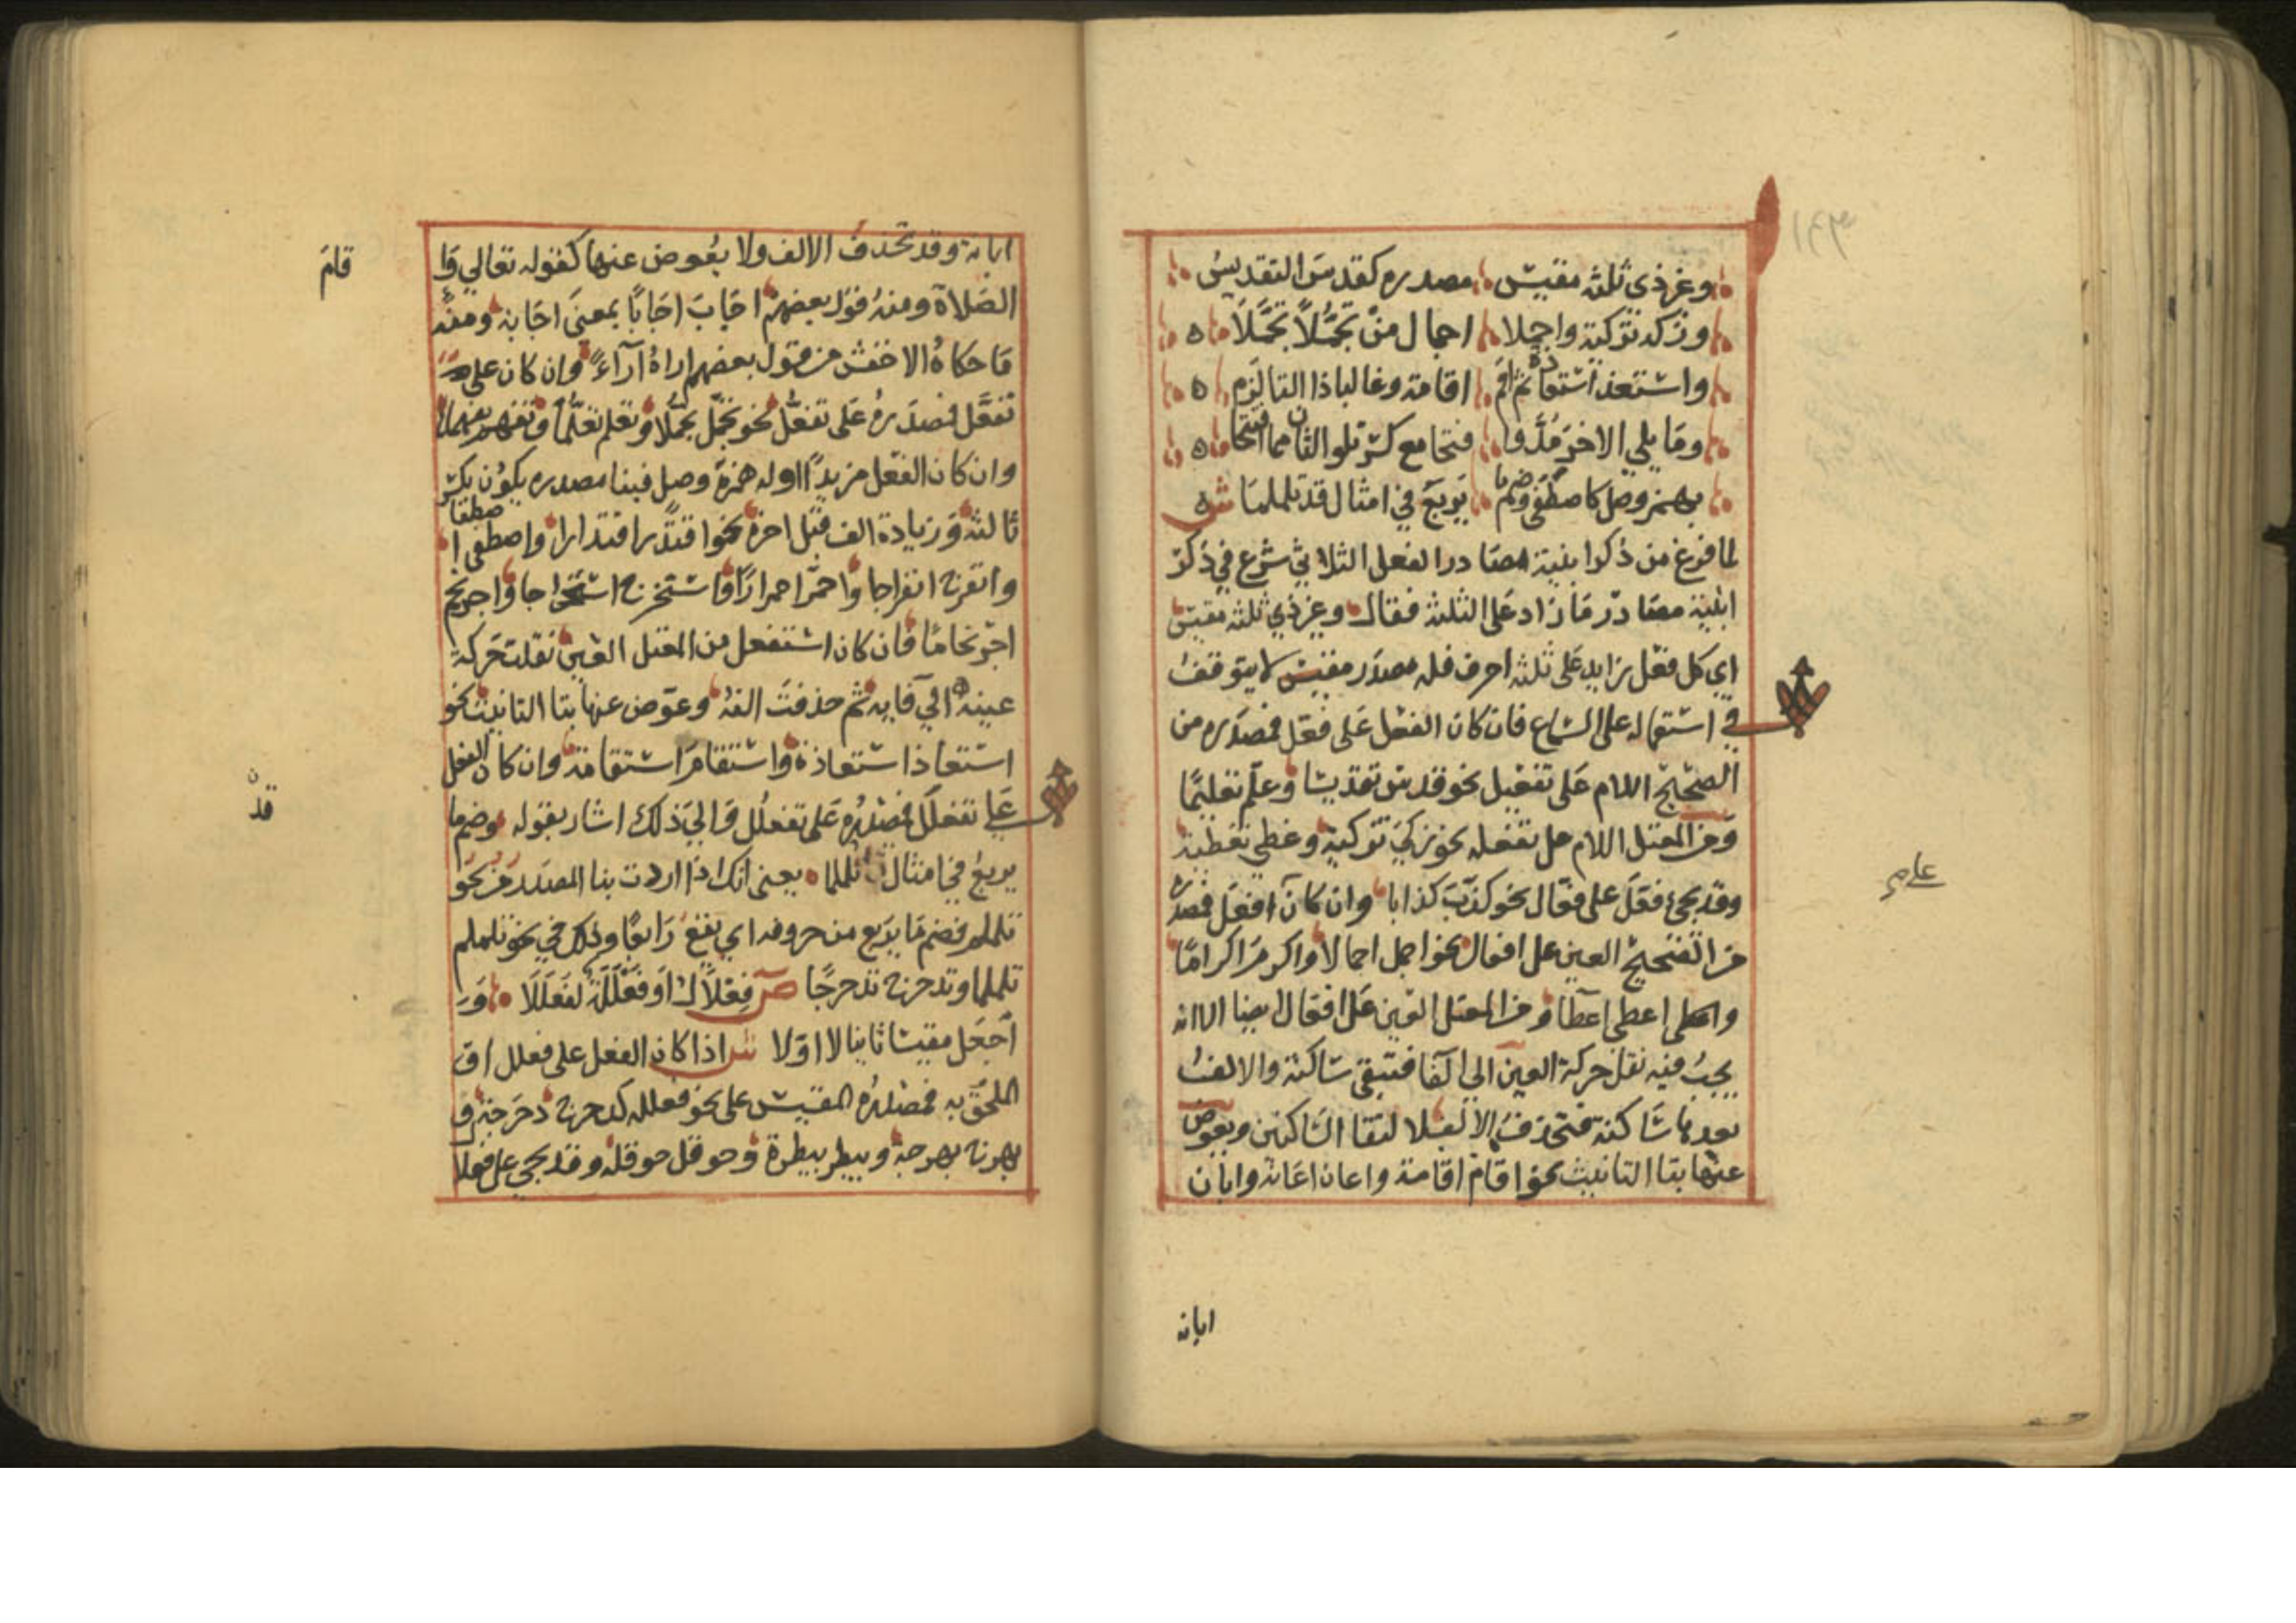 وغر ذي ثلثه مقيس مصدره كقدس التقديس
وزكه تزكية واجملا اجمال من تجملا تجملا
واستعذ استعاذة ثم اقم اقامة وغالبا ذا التا لزم
وما يلي الاخر مد وافتحا مع كسر تلو الثان مما افتتحا
بهمز وصل كاصطفى وضم ما يربع في امثال قد تلملما ش
لما فرغ من ذكر ابنية مصادر الفعل الثلاثي شرع في ذكر
ابنية مصادر ما زاد على الثلثه فقال وغر ذي ثلثه مقيس
اي كل فعل زايد على ثلثه احرف فله مصدر مقيس لا يتوقف
في استعماله على السماع فان كان الفعل على فعل فمصدره من
الصحيح اللام على تفعيل نحو قدس تقديسا وعلم تعليما
ومن المعتل اللام على تفعله نحو زكي تزكية وغطي تغطية
وقد يجئ فعل على فعال نحو كذب كذابا وان كان افعل فمصدره
من الصحيح العين على افعال نحو اجمل اجمالا واكرم اكراما
واعطى اعطا ومن المعتل العين على افعال ايضا الا انه
يجب فيه نقل حركة العين الي الفا فتبقى ساكنة والالف
بعدها ساكنة فتحذف الالف لالتقا الساكنين ويعوض
عنها بتا التانيث نحو اقام اقامة واعان اعانة وابان
علم
ابانه
ابانة وقد تحذف الالف ولا يعوض عنها كقوله تعالي وا
قام
الصلاة ومنه قول بعضهم اجاب اجابا بمعنى اجابة ومنه
ما حكاه الاخفش من قول بعضهم اراه اراء وان كان على
تفعل فمصدره على تفعل نحو تجمل تجملا وتعلم تعلما وتفهم تفهما
وان كان الفعل مزيدا اوله همزة وصل فبنا مصدره يكون بكسر
ثالثه وزيادة الف قبل اخره نحو اقتدر اقتدارا واصطفى اصطفا
وانفرج انفراجا واحمر احمرارا واستخرج استخراجا واحرنجم
احرنجاما فان كان استفعل من المعتل العين نقلت حركة
عينه الي فايه ثم حذفت الفه وعوض عنها بتا التانيث نحو
استعاذ استعاذة واستقام استقامة وان كان الفعل
على تفعلل فمصدره على تفعلل والي ذلك اشار بقوله وضم ما
قد
يربع في امثال تلملما يعني انك اذا اردت بنا المصدر من نحو
تلملم فضم ما يربع من حروفه اي يقع رابعا وذلك في نحو تلملم
تلملما وتدحرج تدحرجا ص فعلال او فعللة لفعللا و
اجعل مقيسا ثانيا لا اولا ش اذا كان الفعل على فعلل او
الملحق به فمصدره المقيس على نحو فعلله كدحرج دحرجة و
بهرج بهرجة وبيطر بيطرة وحوقل حوقلة وقد يجي على فعلا